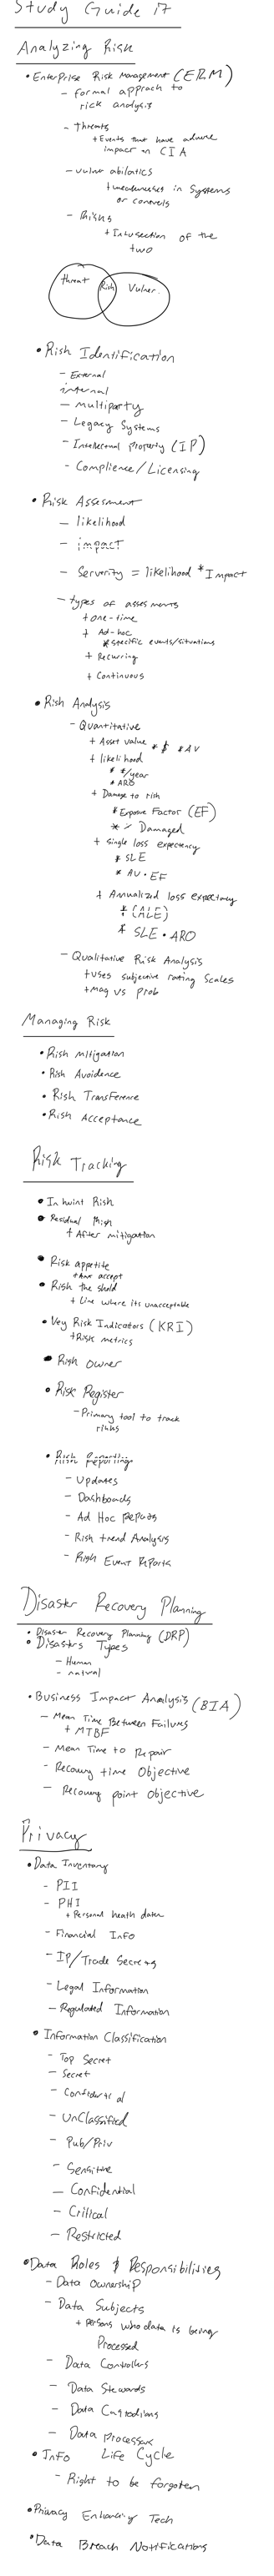 Study Guide 17
Analyzing Risk
• Enterprise Risk Management (ERM)
- formal approch to
risk analysis
- threats
+ Events that have adverse
impact on CIA
- vulnerabilatics
+ weaknesses in Systems
or controls
- Risks
+ Intersection of the
two
threat Risk Vulner.
• Risk Identification
- External
internal
- multiparty
- Legacy Systems
- Intellectual Property (IP)
- Complience/Licensing
• Risk Assesment
- likelihood
- impact
- Serverity = likelihood * Impact
- types of assesments
+ one-time
+ Ad-hoc
* specific events/situations
+ Recurring
+ Continuous
• Risk Analysis
- Quantitative
+ Asset value * $ * AV
+ likelihood
* #/year
* ARO
+ Damage to risk
* Exposure Factor (EF)
* % Damaged
+ single loss expectency
* SLE
* AV • EF
+ Annualized loss expectancy
* (ALE)
* SLE • ARO
- Qualitative Risk Analysis
+ uses subjective rating Scales
+ Mag vs Prob
Managing Risk
• Risk mitigation
• Risk Avoidence
• Risk Transference
• Risk Acceptance
Risk Tracking
• Inherint Risk
• Residual Risk
+ After mitigation
• Risk appetite
+ Amt accept
• Risk the shold
+ Line where its unacceptable
• Key Risk Indicators (KRI)
+ Risk metrics
• Risk Owner
• Risk Register
- Primary tool to track
risks
• Risk Reporting
- Updates
- Dashboads
- Ad Hoc Repots
- Risk trend Analysis
- Risk Event Reports
Disaster Recovery Planning
• Disaster Recovery Planning (DRP)
• Disasters Types
- Human
- natural
• Business Impact Analysis (BIA)
- Mean Time Between Failures
+ MTBF
- Mean Time to Repair
- Recovery time Objective
- Recovery point Objective
Privacy
• Data Inventory
- PII
- PHI
+ Personal heath data
- Financial Info
- IP/Trade Secrets
- Legal Information
- Regulated Information
• Information Classification
- Top Secret
- Secret
- Confidential
- UnClassified
- Pub/Priv
- Sensitive
- Confidential
- Critical
- Restricted
• Data Roles & Responsibilities
- Data Ownership
- Data Subjects
+ persons who data is being
Processed
- Data Controllers
- Data Stewards
- Data Custodians
- Data Processors
• Info Life Cycle
- Right to be forgoten
• Privacy Enhancing Tech
• Data Breach Notifications